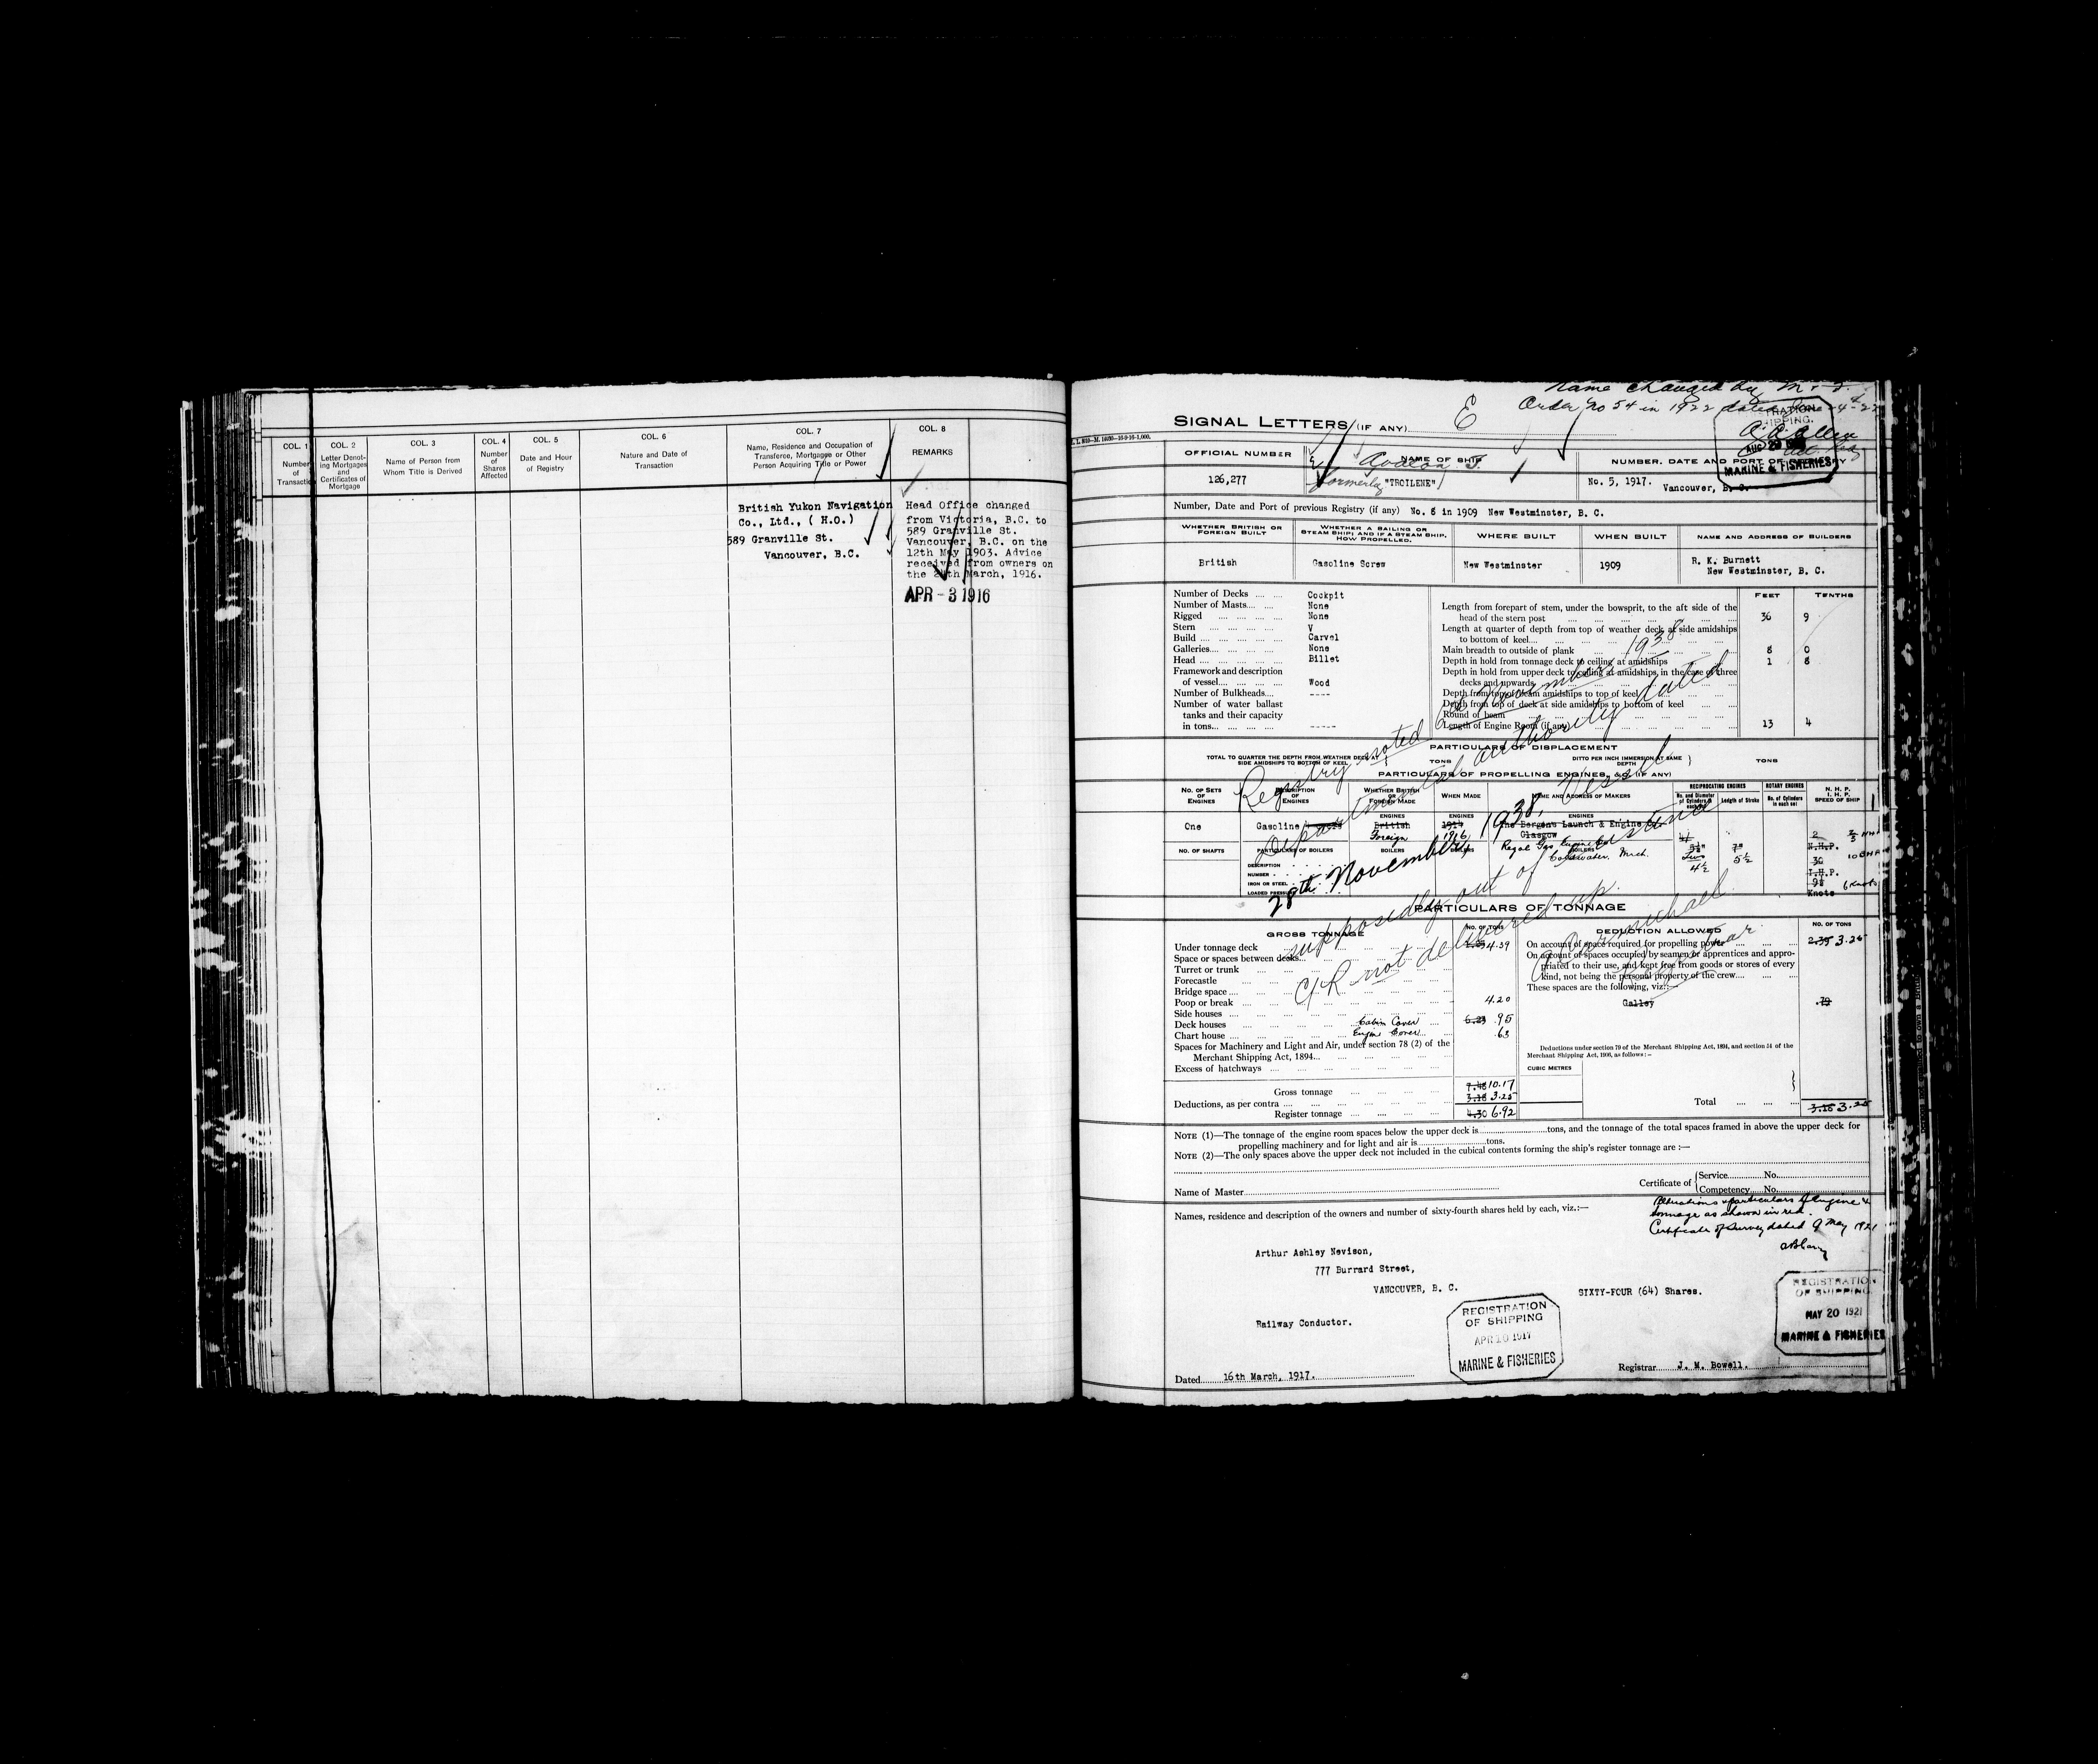 COL. 1
Number
of
Transaction
COL. 2
Letter Denot-
ing Mortgages
and
Certificates of
Mortgage
COL. 3
Name of Person from
Whom Title is Derived
COL. 4
Number
of
Shares
Affected
COL. 5
Date and Hour
of Registry
COL. 6
Nature and Date of
Transaction
COL. 7
Name, Residence and Occupation of
Transferee, Mortgagee or Other
Person Acquiring Title or Power
COL. 8
REMARKS
British Yukon Navigation
Co., Ltd., ( H.O.)
589 Granville St.
Vancouver, B.C.
Head Office changed
from Victoria, B.C. to
589 Granville St.
Vancouver, B.C. on the
12th May 1903. Advice
received from owners on
the March, 1916.
APR - 3 1916
Name changed by
Order No 54 in 1922 dated
SIGNAL LETTERS (IF ANY)
E
REGISTRATION
OF SHIPPING.
AUG 29
MARINE & FISHERIES
OFFICIAL NUMBER
NAME OF SHIP
NUMBER, DATE AND PORT OF REGISTRY
126,277
formerly "TROILENE"
No. 5, 1917.
Vancouver, B. C.
Number, Date and Port of previous Registry (if any) No. 8 in 1909 New Westminster, B. C.
WHETHER BRITISH OR
FOREIGN BUILT
WHETHER A SAILING OR
STEAM SHIP; AND IF A STEAM SHIP,
HOW PROPELLED.
WHERE BUILT
WHEN BUILT
NAME AND ADDRESS OF BUILDERS
British
Gasoline Screw
New Westminster
1909
R. K. Burnett
New Westminster, B. C.
Number of Decks Cockpit
Number of Masts None
Rigged None
Stern V
Build Carvel
Galleries None
Head Billet
Framework and description
of vessel Wood
Number of Bulkheads ----
Number of water ballast
tanks and their capacity
in tons -----
FEET TENTHS
Length from forepart of stem, under the bowsprit, to the aft side of the
head of the stern post 36 9
Length at quarter of depth from top of weather deck at side amidships
to bottom of keel
Main breadth to outside of plank 8 0
Depth in hold from tonnage deck to ceiling at amidships 1 8
Depth in hold from upper deck to ceiling at amidships, in the case of three
decks and upwards
Depth from top of beam amidships to top of keel
Depth from top of deck at side amidships to bottom of keel
Round of beam
Length of Engine Room (if any) 13 4
Registry noted 6 December 1938
Departmental authority dated
28th November 1938. Vessel
supposedly out of existence
C/R not delivered up.
Registrar
PARTICULARS OF DISPLACEMENT
TOTAL TO QUARTER THE DEPTH FROM WEATHER DECK AT
SIDE AMIDSHIPS TO BOTTOM OF KEEL
TONS
DITTO PER INCH IMMERSION AT SAME
DEPTH
TONS
PARTICULARS OF PROPELLING ENGINES, &c. (IF ANY)
NO. OF SETS
OF
ENGINES
DESCRIPTION
OF
ENGINES
WHETHER BRITISH
OR
FOREIGN MADE
WHEN MADE
NAME AND ADDRESS OF MAKERS
RECIPROCATING ENGINES
No. and Diameter
of Cylinders in
each set
Length of Stroke
ROTARY ENGINES
No. of Cylinders
in each set
N. H. P.
I. H. P.
SPEED OF SHIP
ENGINES
ENGINES
ENGINES
One
Gasoline
British
Foreign
1914
1916
The Bergens Launch & Engine Co
Glasgow
Regal Gas Engine Co
Coldwater, Mich.
Two
4½
7"
5½
2
N.H.P.
30
I.H.P.
9½
Knots
10 BHP
6 Knots
NO. OF SHAFTS
PARTICULARS OF BOILERS
BOILERS
BOILERS
BOILERS
DESCRIPTION
NUMBER
IRON OR STEEL
LOADED PRESSURE
PARTICULARS OF TONNAGE
GROSS TONNAGE
NO. OF TONS
DEDUCTION ALLOWED
NO. OF TONS
Under tonnage deck 4.39
Space or spaces between decks
Turret or trunk
Forecastle
Bridge space
Poop or break 4.20
Side houses
Deck houses Cabin Cover 6.23 .95
Chart house Engine Cover .63
Spaces for Machinery and Light and Air, under section 78 (2) of the
Merchant Shipping Act, 1894
Excess of hatchways
Gross tonnage 7.48 10.17
Deductions, as per contra 3.18 3.25
Register tonnage 4.30 6.92
On account of space required for propelling power 2.39 3.25
On account of spaces occupied by seamen or apprentices and appro-
priated to their use, and kept free from goods or stores of every
kind, not being the personal property of the crew
These spaces are the following, viz:—
Galley .79
Deductions under section 79 of the Merchant Shipping Act, 1894, and section 54 of the
Merchant Shipping Act, 1906, as follows:—
CUBIC METRES
Total 3.18 3.25
NOTE (1)—The tonnage of the engine room spaces below the upper deck is tons, and the tonnage of the total spaces framed in above the upper deck for
propelling machinery and for light and air is tons.
NOTE (2)—The only spaces above the upper deck not included in the cubical contents forming the ship's register tonnage are:—
Name of Master
Certificate of
Service No.
Competency No.
Names, residence and description of the owners and number of sixty-fourth shares held by each, viz.:—
Alterations particulars of Engine &
tonnage as shown in red.
Certificate of Survey dated 9 May 1921
Arthur Ashley Nevison,
777 Burrard Street,
VANCOUVER, B. C.
SIXTY-FOUR (64) Shares.
Railway Conductor.
REGISTRATION
OF SHIPPING
APR 10 1917
MARINE & FISHERIES
REGISTRATION
OF SHIPPING.
MAY 20 1921
MARINE & FISHERIES
Dated 16th March, 1917.
Registrar J. M. Bowell.